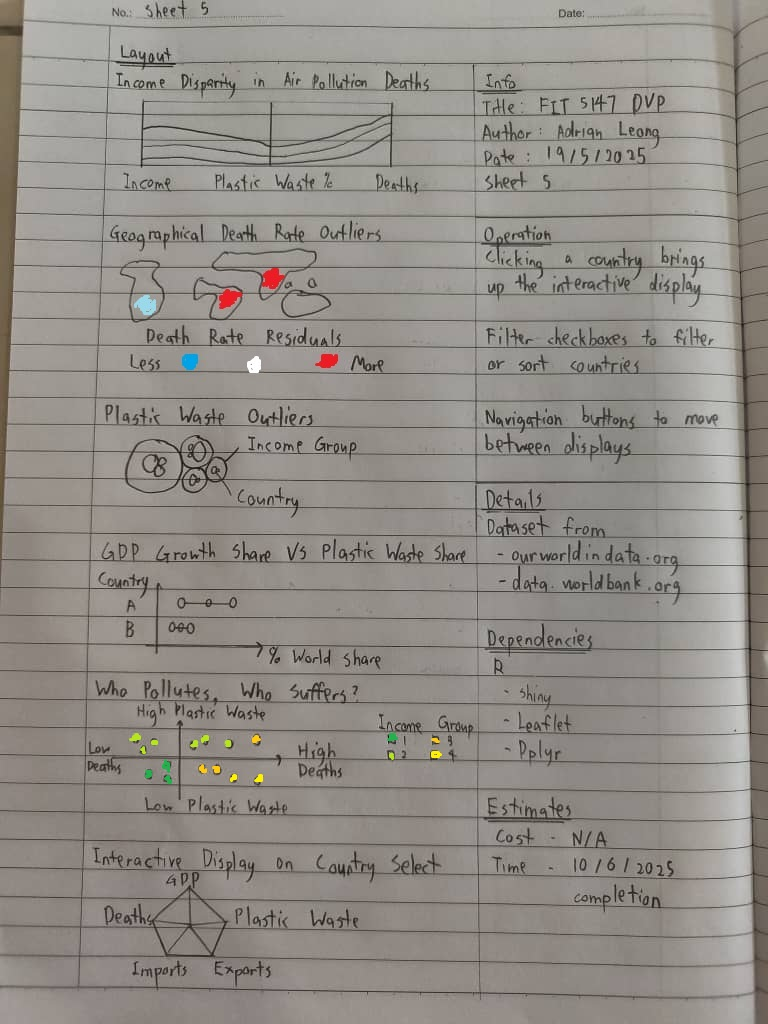 No.: Sheet 5
Date:
Layout
Income Disparity in Air Pollution Deaths
Income Plastic Waste % Deaths
Geographical Death Rate Outliers
Death Rate Residuals
Less More
Plastic Waste Outliers
Income Group
Country
GDP Growth Share Vs Plastic Waste Share
Country
A
B
% World Share
Who Pollutes, Who Suffers?
High Plastic Waste
Low Deaths
High Deaths
Low Plastic Waste
Income Group
1 3
2 4
Interactive Display on Country Select
GDP
Deaths Plastic Waste
Imports Exports
Info
Title: FIT 5147 DVP
Author: Adrian Leong
Date: 19/5/2025
Sheet 5
Operation
Clicking a country brings
up the interactive display
Filter checkboxes to filter
or sort countries
Navigation buttons to move
between displays
Details
Dataset from
- ourworldindata.org
- data.worldbank.org
Dependencies
R
- Shiny
- Leaflet
- Dplyr
Estimates
Cost - N/A
Time - 10/6/2025
completion